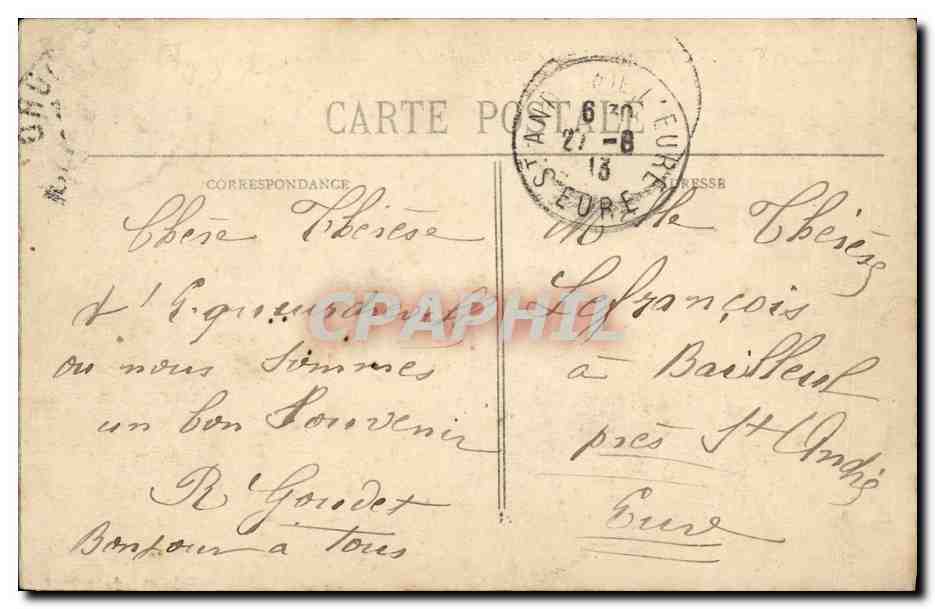 CARTE POSTALE
ST ANDRÉ DE L'EURE
6 30
27 -8
13
EURE
CORRESPONDANCE
Chère Thérèse
d'Equeurdreville
ou nous sommes
un bon Souvenir
R Goudet
Bonjour a Tous
ADRESSE
Mlle Thérèse
Lefrançois
à Bailleul
près St André
Eure
CPAPHIL